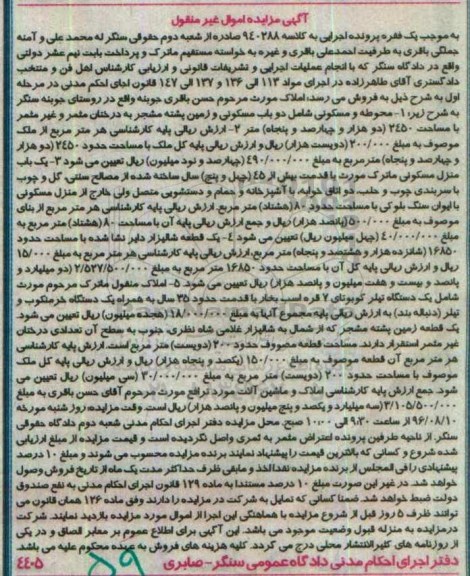 آگهی مزایده اموال غیر منقول
به موجب یک فقره پرونده اجرایی به کلاسه ۹۴۰۲۸۸ صادره از شعبه دوم حقوقی سنگر له محمد علی و آمنه
جملگی باقری به طرفیت احمدعلی باقری و غیره به خواسته مستقیم ماترک و پرداخت بابت نیم عشر دولتی
واقع در دادگاه سنگر که با انجام عملیات اجرایی و تشریفات قانونی و ارزیابی کارشناس اهل فن و منتخب
دادگستری آقای طاهرزاده در اجرای مواد ۱۱۳ الی ۱۳۶ و ۱۳۷ الی ۱۴۷ قانون اجای احکم مدنی در مرحله
اول به شرح ذیل به فروش می رسد: املاک مورث مرحوم حسن باقری جوبنه واقع در روستای جوبنه سنگر
به شرح زیر: ۱- محوطه و مسکونی شامل دو باب مسکونی و زمین پشته مشجر به درختان مثمر و غیر مثمر
با مساحت ۲۴۵۰ (دو هزار و چهارصد و پنجاه) متر ۲- ارزش ریالی پایه کارشناسی هر متر مربع از ملک
موصوف به مبلغ ۲۰۰/۰۰۰ (دویست هزار) ریال و ارزش ریالی پایه کل ملک با مساحت حدود ۲۴۵۰ (دو هزار
و چهارصد و پنجاه) متر مربع به مبلغ ۴۹۰/۰۰۰/۰۰۰ (چهارصد و نود میلیون) ریال تعیین می شود ۳- یک باب
منزل مسکونی ماترک مورث با قدمت بیش از ۴۵ (چهل و پنج) سال ساخته شده از مصالح سنتی گل و چوب
با سربندی چوب و حلب، دو اتاق خوابه، با آشپزخانه و حمام و دستشویی متصل ولی خارج از منزل مسکونی
با ایوان سنگ بلوکی با مساحت حدود ۸۰ (هشتاد) متر مربع. ارزش ریالی پایه کارشناسی هر متر مربع از بنای
موصوف به مبلغ ۵۰۰/۰۰۰ (پانصد هزار) ریال و جمع ارزش ریالی پایه آن با مساحت ۸۰ (هشتاد) متر مربع به
مبلغ ۴۰/۰۰۰/۰۰۰ (چهل میلیون ریال) تعیین می شود ۴- یک قطعه شالیزار دایر نشا شده با مساحت حدود
۱۶۸۵۰ (شانزده هزار و هشتصد و پنجاه) متر مربع. ارزش ریالی پایه کارشناسی هر متر مربع به مبلغ ۱۵/۰۰۰
ریال و ارزش ریالی پایه کل آن با مساحت حدود ۱۶۸۵۰ متر مربع به مبلغ ۲/۵۲۷/۵۰۰/۰۰۰ (دو میلیارد و
پانصد و بیست و هفت میلیون و پانصد هزار) ریال تعیین می شود. ۵- املاک منقول ماترک مرحوم مورث
شامل یک دستگاه تیلر کوبوتای ۷ قره اسب بخار با قدمت حدود ۳۵ سال به همراه یک دستگاه خرمنکوب و
تیلر (دنباله بند) به ارزش ریالی پایه مجموع آنها به مبلغ ۱۸/۰۰۰/۰۰۰ (هجده میلیون) ریال تعیین می شود.
یک قطعه زمین پشته مشجر که از شمال به شالیزار غلامی شاه نظری، جنوب به سطح آن تعدادی درختان
غیر مثمر استقرار دارند. مساحت قطعه مصوفوف حدود ۲۰۰ (دویست) متر مربع است. ارزش پایه کارشناسی
هر متر مربع آن قطعه موصوف به مبلغ ۱۵۰/۰۰۰ (یکصد و پنجاه هزار) ریال و ارزش ریالی پایه کل ملک
موصوف با مساحت حدود ۲۰۰ (دویست) متر مربع به مبلغ ۳۰/۰۰۰/۰۰۰ (سی میلیون) ریال تعیین می
شود. جمع ارزش پایه کارشناسی املاک و ماشین آلات مورد ترافع مورث مرحوم آقای حسن باقری به مبلغ
۳/۱۰۵/۵۰۰/۰۰۰ (سه میلیارد و یکصد و پنج میلیون و پانصد هزار) ریال است. وقت مزایده: روز شنبه مورخه
۹۶/۰۸/۱۰ از ساعت ۹:۳۰ الی ۱۰:۰۰ صبح. محل مزایده دفتر اجرای احکم مدنی شعبه دوم دادگاه حقوقی
سنگر. از ناحیه طرفین پرونده اعتراض مثمر به ثمری واصل نگردیده است و قیمت مزایده از مبلغ ارزیابی
شده شروع و کسانی که بالاترین قیمت را پیشنهاد نمایند برنده مزایده محسوب می شوند و مبلغ ۱۰ درصد
پیشنهادی را فی المجلس از برنده مزایده نقدا اخذ و مابقی ظرف حداکثر مدت یک ماه از تاریخ فروش وصول
خواهد شد. در غیر این صورت مبلغ ۱۰ درصد مستندا به ماده ۱۲۹ قانون اجرای احکام مدنی به نفع صندوق
دولت ضبط خواهد شد. ضمنا کسانی که تمایل به شرکت در مزایده را دارند وفق ماده ۱۲۶ همان قانون می
توانند ظرف ۵ روز قبل از شروع مزایده با هماهنگی این اجرا از اموال مورد مزایده بازدید نمایند. شرکت
درمزایده به منزله قبول وضعیت موجود می باشد. این آگهی برای اطلاع عموم بر معابر الصاق و در یکی
از روزنامه های کثیرالانتشار محلی درج می گردد. کلیه هزینه های فروش به عهده محکوم علیه می باشد.
دفتر اجرای احکام مدنی دادگاه عمومی سنگر - صابری
۴۴۰۵
۵۹